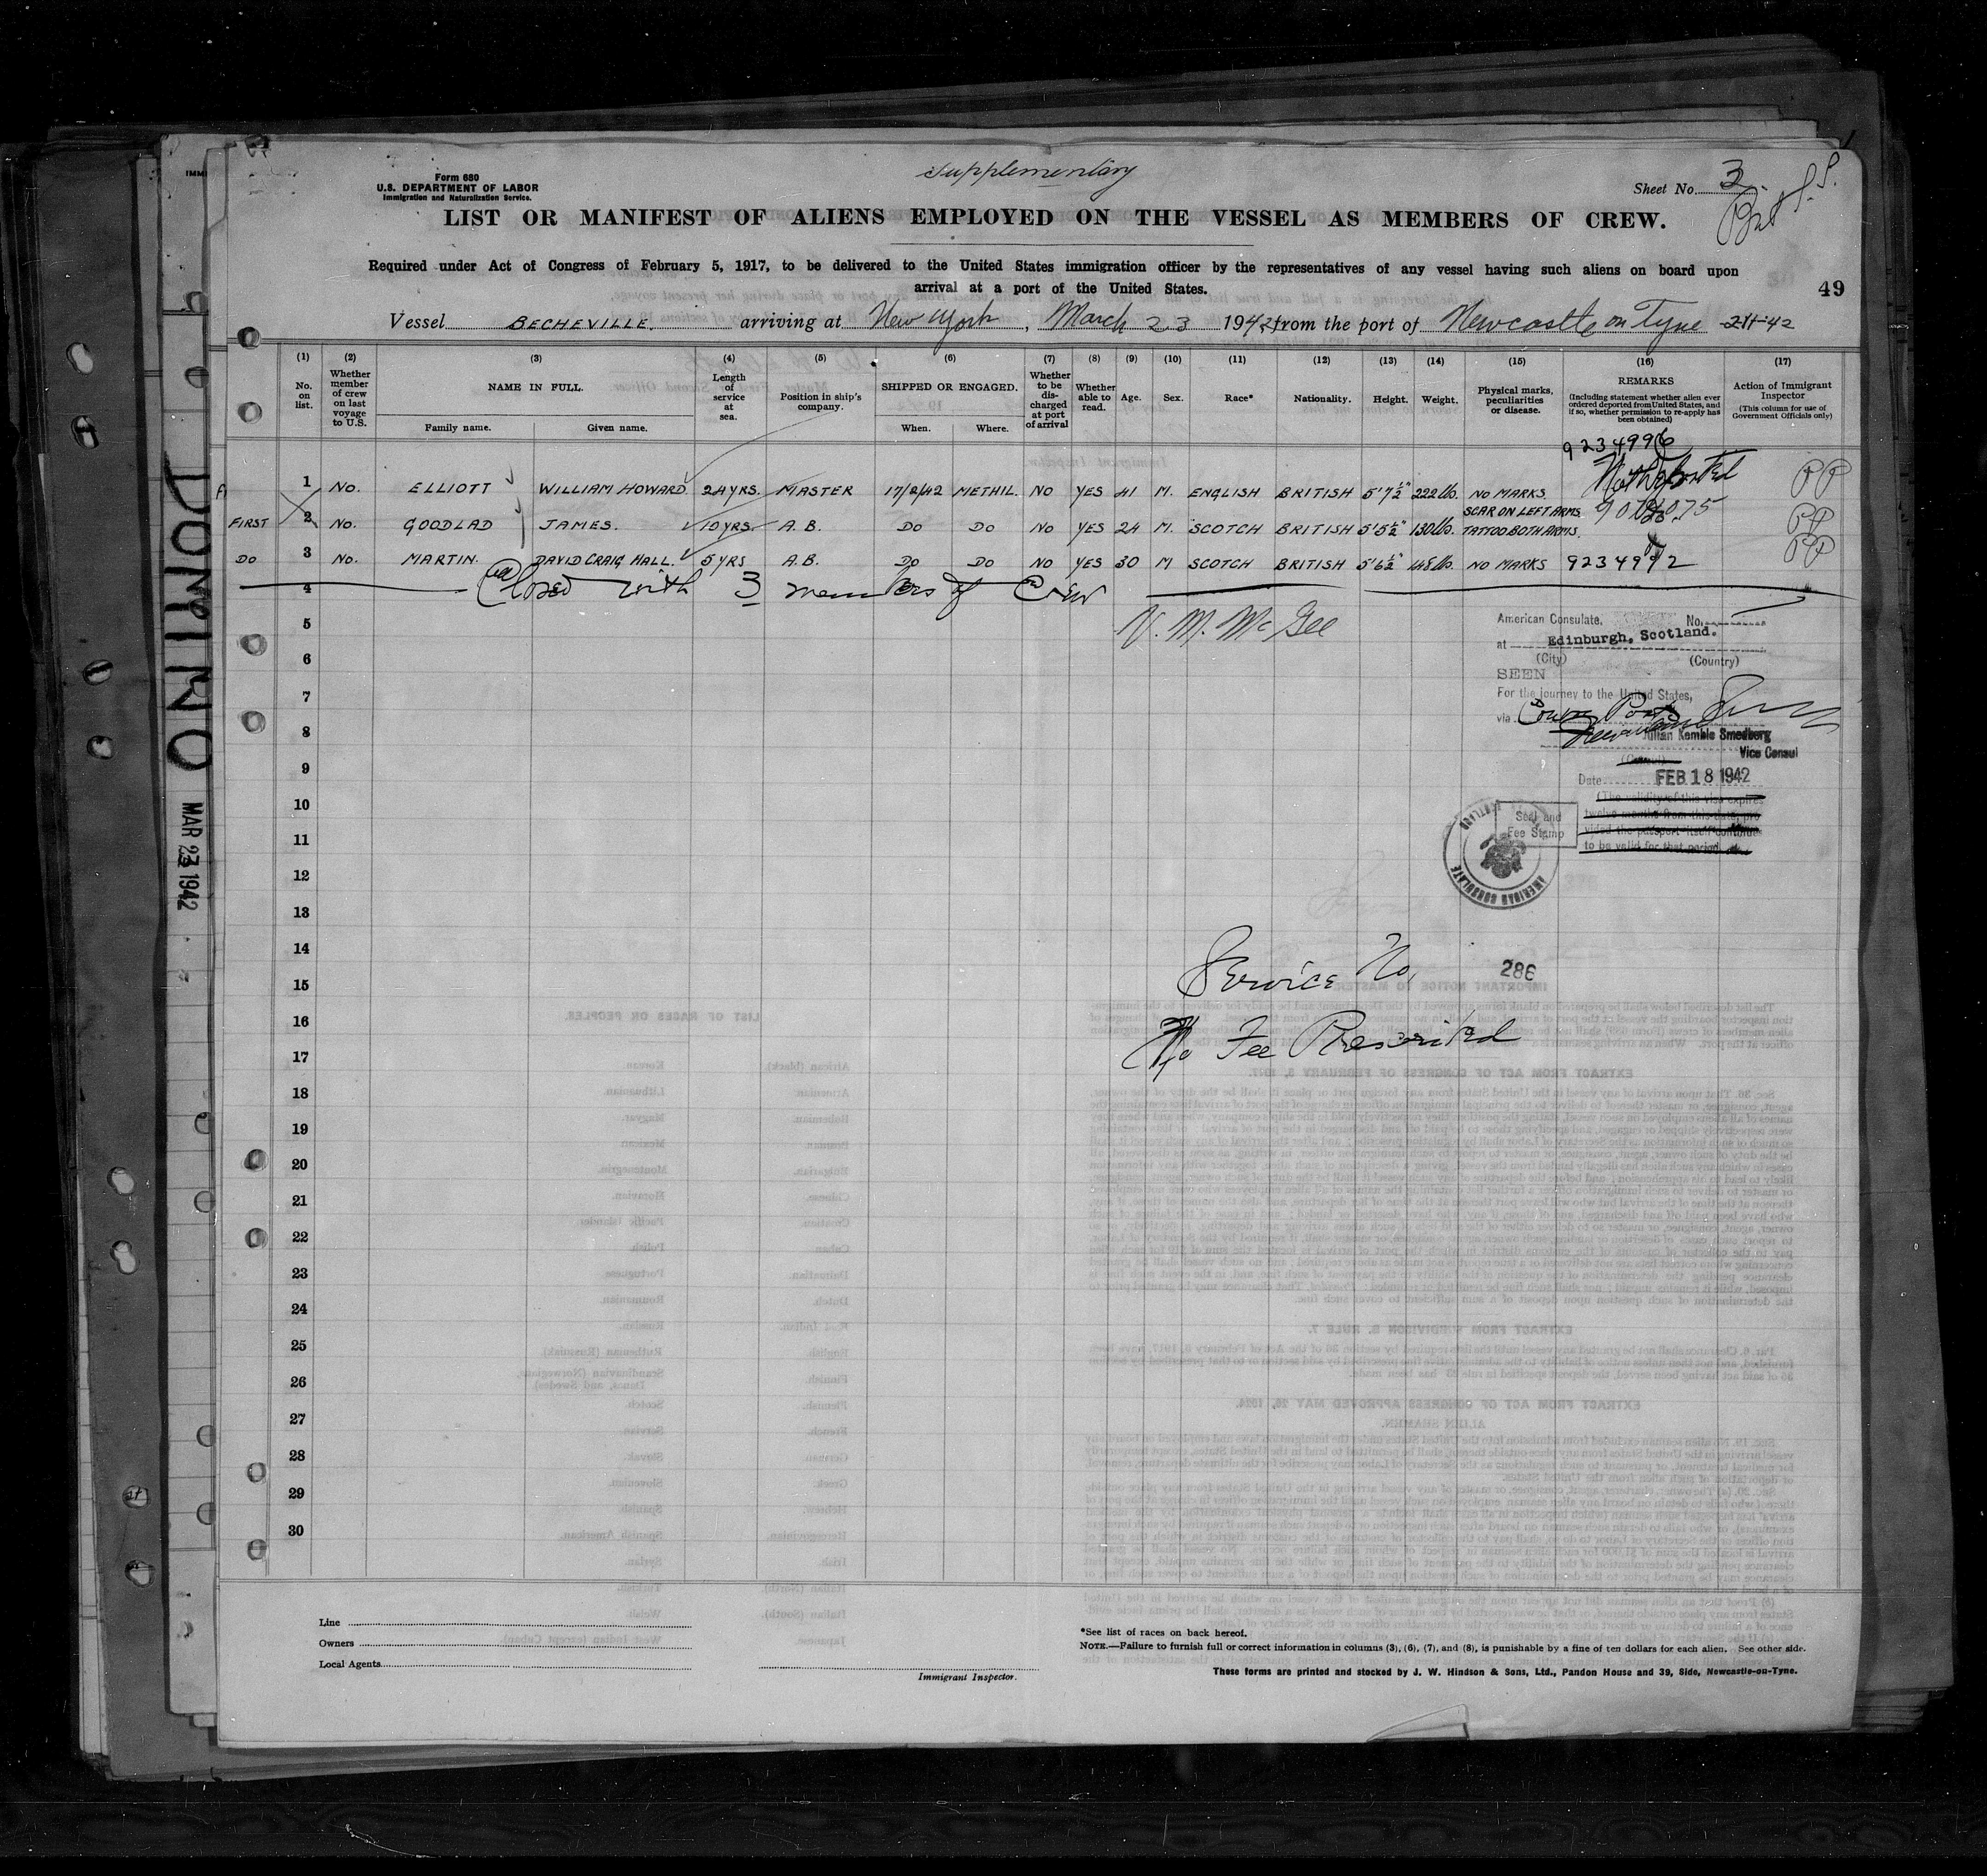 Supplementary
Form 680
U.S. DEPARTMENT OF LABOR
Immigration and Naturalization Service.
Sheet No. 3
LIST OR MANIFEST OF ALIENS EMPLOYED ON THE VESSEL AS MEMBERS OF CREW.
Required under Act of Congress of February 5, 1917, to be delivered to the United States immigration officer by the representatives of any vessel having such aliens on board upon
arrival at a port of the United States.
49
Vessel BECHEVILLE. arriving at New York, March 23 1942 from the port of Newcastle on Tyne
(1) (2) (3) (4) (5) (6) (7) (8) (9) (10) (11) (12) (13) (14) (15) (16) (17)
No. on list.
Whether member of crew on last voyage to U.S.
NAME IN FULL.
Family name. Given name.
Length of service at sea.
Position in ship's company.
SHIPPED OR ENGAGED.
When. Where.
Whether to be discharged at port of arrival
Whether able to read.
Age.
Sex.
Race*
Nationality.
Height.
Weight.
Physical marks, peculiarities or disease.
REMARKS
(Including statement whether alien ever ordered deported from United States, and if so, whether permission to re-apply has been obtained)
Action of Immigrant Inspector
(This column for use of Government Officials only)
9234996
1 NO. ELLIOTT WILLIAM HOWARD 24 YRS. MASTER 17/2/42 METHIL. NO YES 41 M. ENGLISH BRITISH 5'7½" 222 lb. NO MARKS. PP
FIRST 2 NO. GOODLAD JAMES. 10 YRS. A.B. DO DO NO YES 24 M. SCOTCH BRITISH 5'5½" 130 lb. SCAR ON LEFT ARMS. TATTOO BOTH ARMS. PP
DO 3 NO. MARTIN. DAVID CRAIG HALL. 5 YRS A.B. DO DO NO YES 30 M SCOTCH BRITISH 5'6½" 148 lb. NO MARKS 9234992 PP
4 Closed with 3 members of Crew
5 V. M. McGee
6
7
8
9
10
11
12
13
14
15
16
17
18
19
20
21
22
23
24
25
26
27
28
29
30
American Consulate. No.
at Edinburgh, Scotland.
(City) (Country)
SEEN
For the journey to the United States,
via
Julian Kemble Smedberg
Vice Consul
(Consul)
Date FEB 18 1942
(The validity of this visa expires
twelve months from this date, pro
vided the passport itself continues
to be valid for that period
Seal and
Fee Stamp
AMERICAN CONSULATE
Service No. 286
No Fee Prescribed
DOMINO MAR 23 1942
Line
Owners
Local Agents
Immigrant Inspector.
*See list of races on back hereof.
NOTE.—Failure to furnish full or correct information in columns (3), (6), (7), and (8), is punishable by a fine of ten dollars for each alien. See other side.
These forms are printed and stocked by J. W. Hindson & Sons, Ltd., Pandon House and 39, Side, Newcastle-on-Tyne.